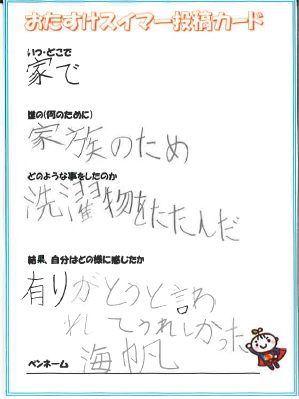 おたすけスイマー投稿カード
いつ・どこで
家で
誰の(何のために)
家族のため
どのような事をしたのか
洗濯物をたたんだ
結果、自分はどの様に感じたか
有りがとうと言わ
れてうれしかった
ペンネーム 海帆